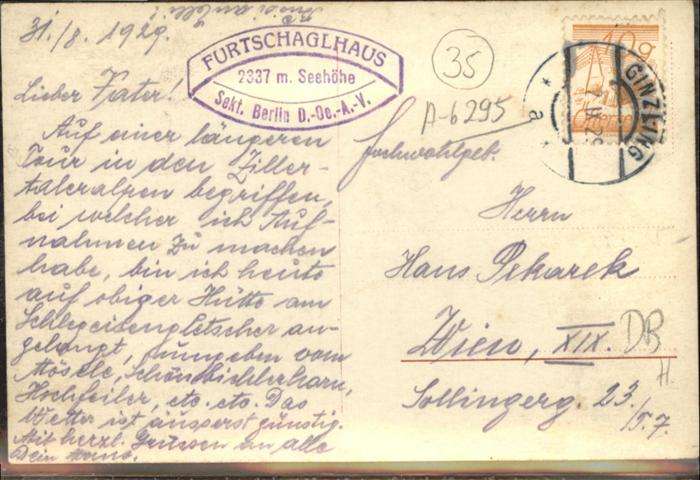 31./8. 1929.
FURTSCHAGLHAUS
2337 m. Seehöhe
Sekt. Berlin D.-Oe.-A.-V.
35
A-6295
GINZLING
Lieber Vater!
Auf einer längeren
Tour in den Ziller-
taleralpen begriffen,
bei welcher ich Auf-
nahmen zu machen
habe, bin ich heute
auf obiger Hütte am
Schlegeisengletscher an-
gelangt, umgeben vom
Mösele, Schönbichlerhorn,
Hochfeiler, etc. etc. Das
Wetter ist äusserst günstig.
Mit herzl. Grüssen an alle
Dein Hans.
Hochwohlgeb.
Herrn
Hans Pekarek
Wien, XIX.
Sollingerg. 23.
/5.7.
DB
H.